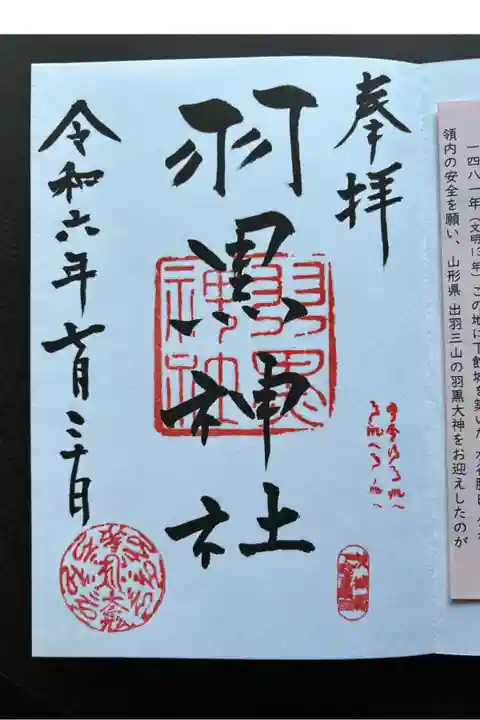 一四八一年(文明13年)この地に下館城を築いた
領内の安全を願い、山形県 出羽三山の羽黒大神をお迎えしたのが
奉拝
羽黒神社
羽黒神社
令和六年七月三十日